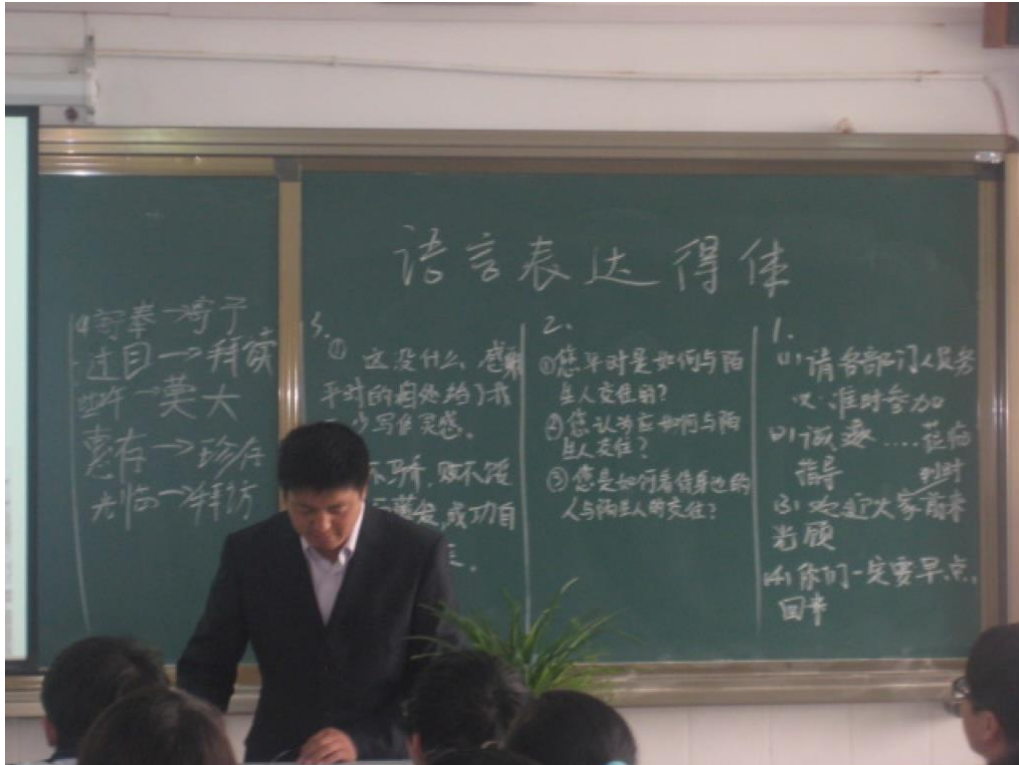 语言表达得体
寄奉→寄予
过目→拜读
些许→莫大
惠存→珍存
光临→拜访
3.
① 这没什么，感谢
平时的相处给了我
写作灵感。
不骄，败不馁
发，成功自
2.
①您平时是如何与陌
生人交往的？
②您认为应如何与陌
生人交往？
③您是如何看待身边的
人与陌生人的交往？
1.
(1)请各部门人员务
必准时参加
(2)诚邀……莅临
指导 到时
(3)欢迎大家前来
光顾
(4)你们一定要早点
回来